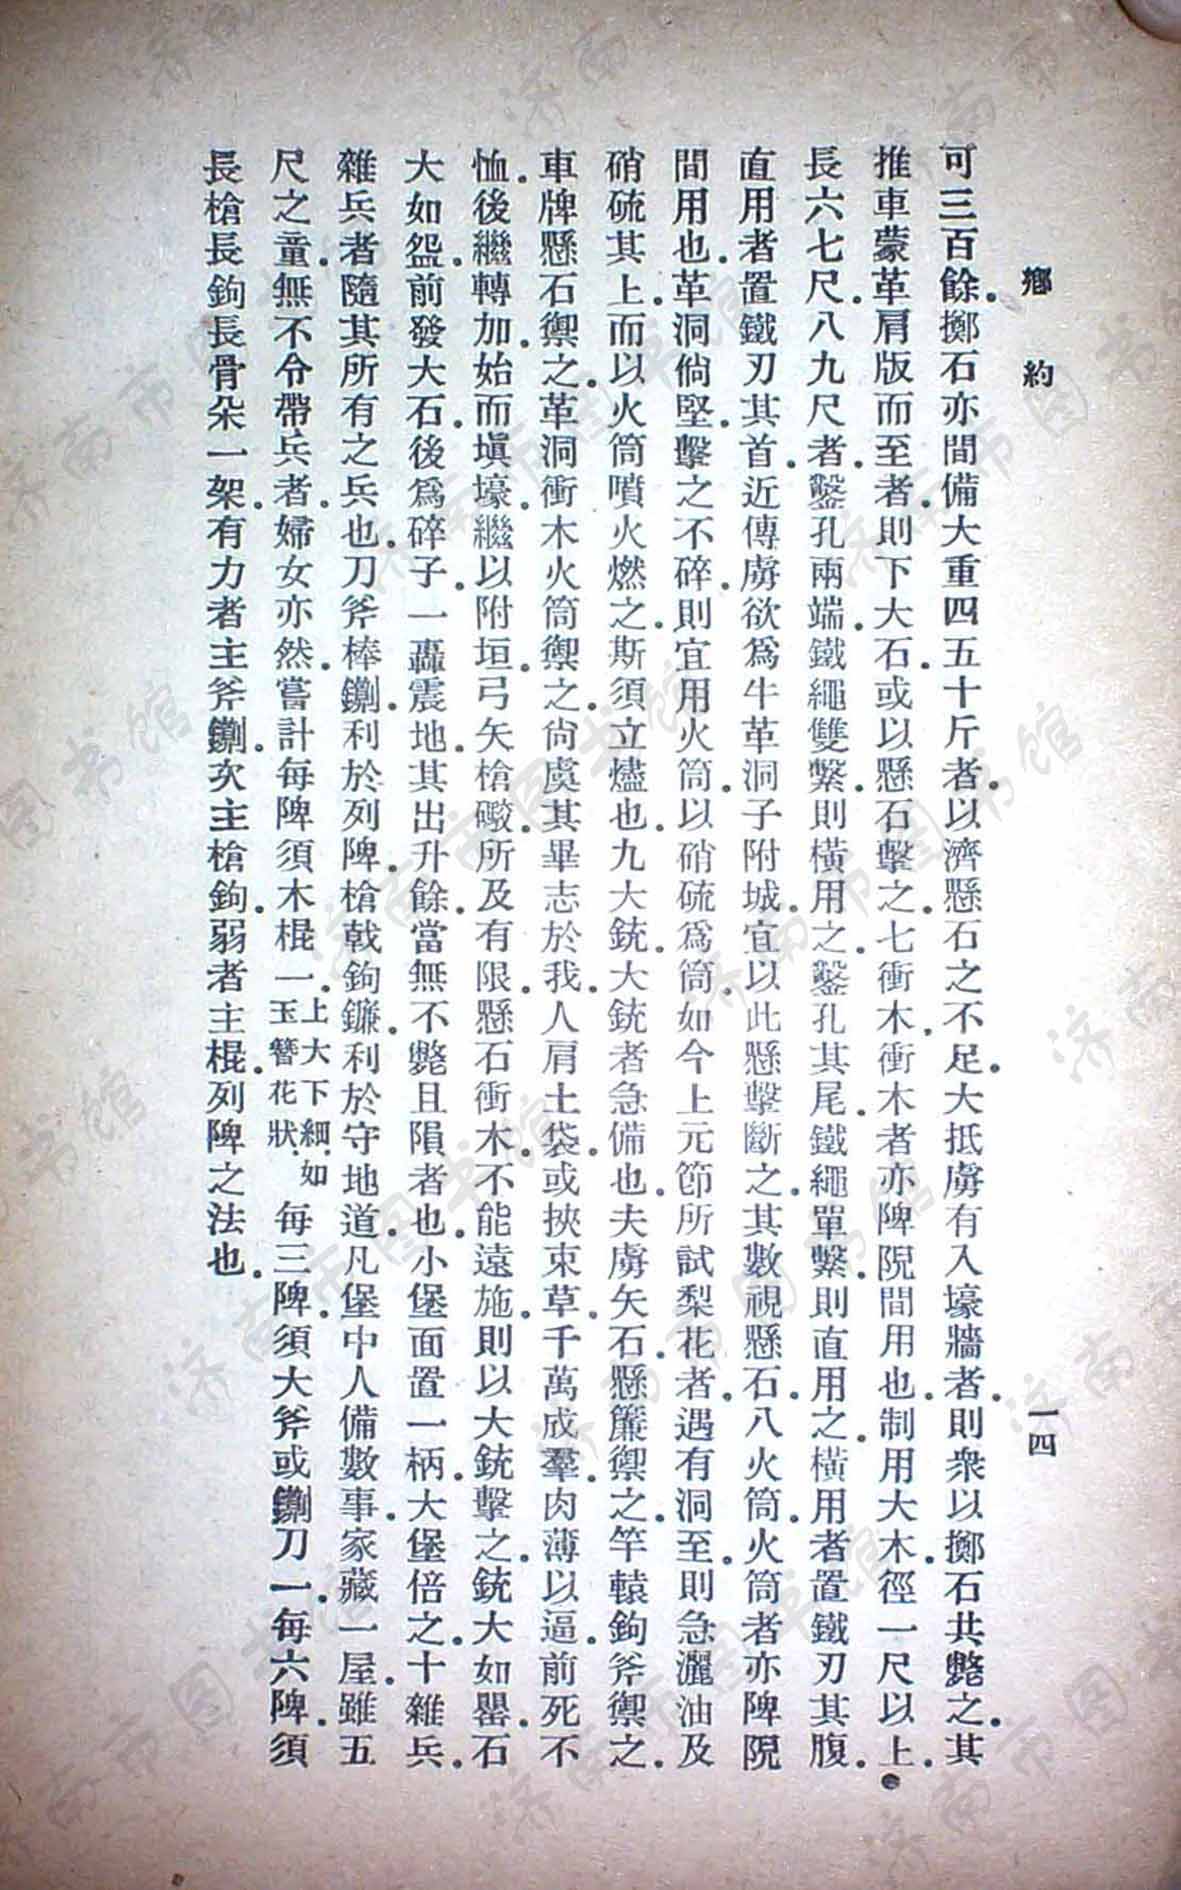 鄉約
一四
可三百餘.擲石亦間備大重四五十斤者.以濟懸石之不足.大抵虜有入壕牆者.則衆以擲石共斃之.其
推車蒙革肩版而至者.則下大石.或以懸石擊之.七衝木.衝木者亦陴隉間用也.制用大木.徑一尺以上.
長六七尺.八九尺者.鑿孔兩端.鐵繩雙繫.則橫用之.鑿孔其尾.鐵繩單繫.則直用之.橫用者置鐵刃其腹.
直用者置鐵刃其首.近傳虜欲爲牛革洞子附城.宜以此懸擊斷之.其數視懸石.八火筒.火筒者亦陴隉
間用也.革洞倘堅.擊之不碎.則宜用火筒.以硝硫爲筒.如今上元節所試梨花者.遇有洞至.則急灑油及
硝硫其上.而以火筒噴火燃之.斯須立燼也.九大銃.大銃者急備也.夫虜矢石.懸簾禦之.竿轅鉤斧禦之.
車牌懸石禦之.革洞衝木火筒禦之.尙虞其畢志於我.人肩土袋.或挾束草.千萬成羣.肉薄以逼.前死不
恤.後繼轉加.始而塡壕.繼以附垣.弓矢槍礮.所及有限.懸石衝木.不能遠施.則以大銃擊之.銃大如罌.石
大如盌.前發大石.後爲碎子.一轟震地.其出升餘.當無不斃且隕者也.小堡面置一柄.大堡倍之.十雜兵.
雜兵者隨其所有之兵也.刀斧棒鍘.利於列陴.槍戟鉤鐮.利於守地道.凡堡中人備數事.家藏一屋.雖五
尺之童.無不令帶兵者.婦女亦然.嘗計每陴須木棍一.上大下細.如玉簪花狀.每三陴.須大斧或鍘刀一.每六陴.須
長槍長鉤長骨朵一架.有力者主斧鍘.次主槍鉤.弱者主棍.列陴之法也.